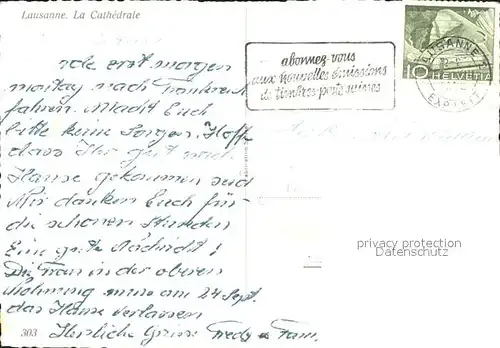 Lausanne. La Cathédrale
erst morgen
montag nach Frankreich
fahren. Macht Euch
bitte keine Sorgen. Hoffe
dass Ihr gut nach
Hause gekommen seid
Wir danken Euch für
die schönen Stunden
Eine gute Nachricht!
Die Frau in der oberen
Wohnung muss am 24 Sept.
das Haus verlassen
Herzliche Grüsse Fredy u Fam.
303
abonnez-vous
aux nouvelles émissions
de timbres-poste suisses
LAUSANNE 1
EXP. LETT.
10 HELVETIA
privacy protection
Datenschutz